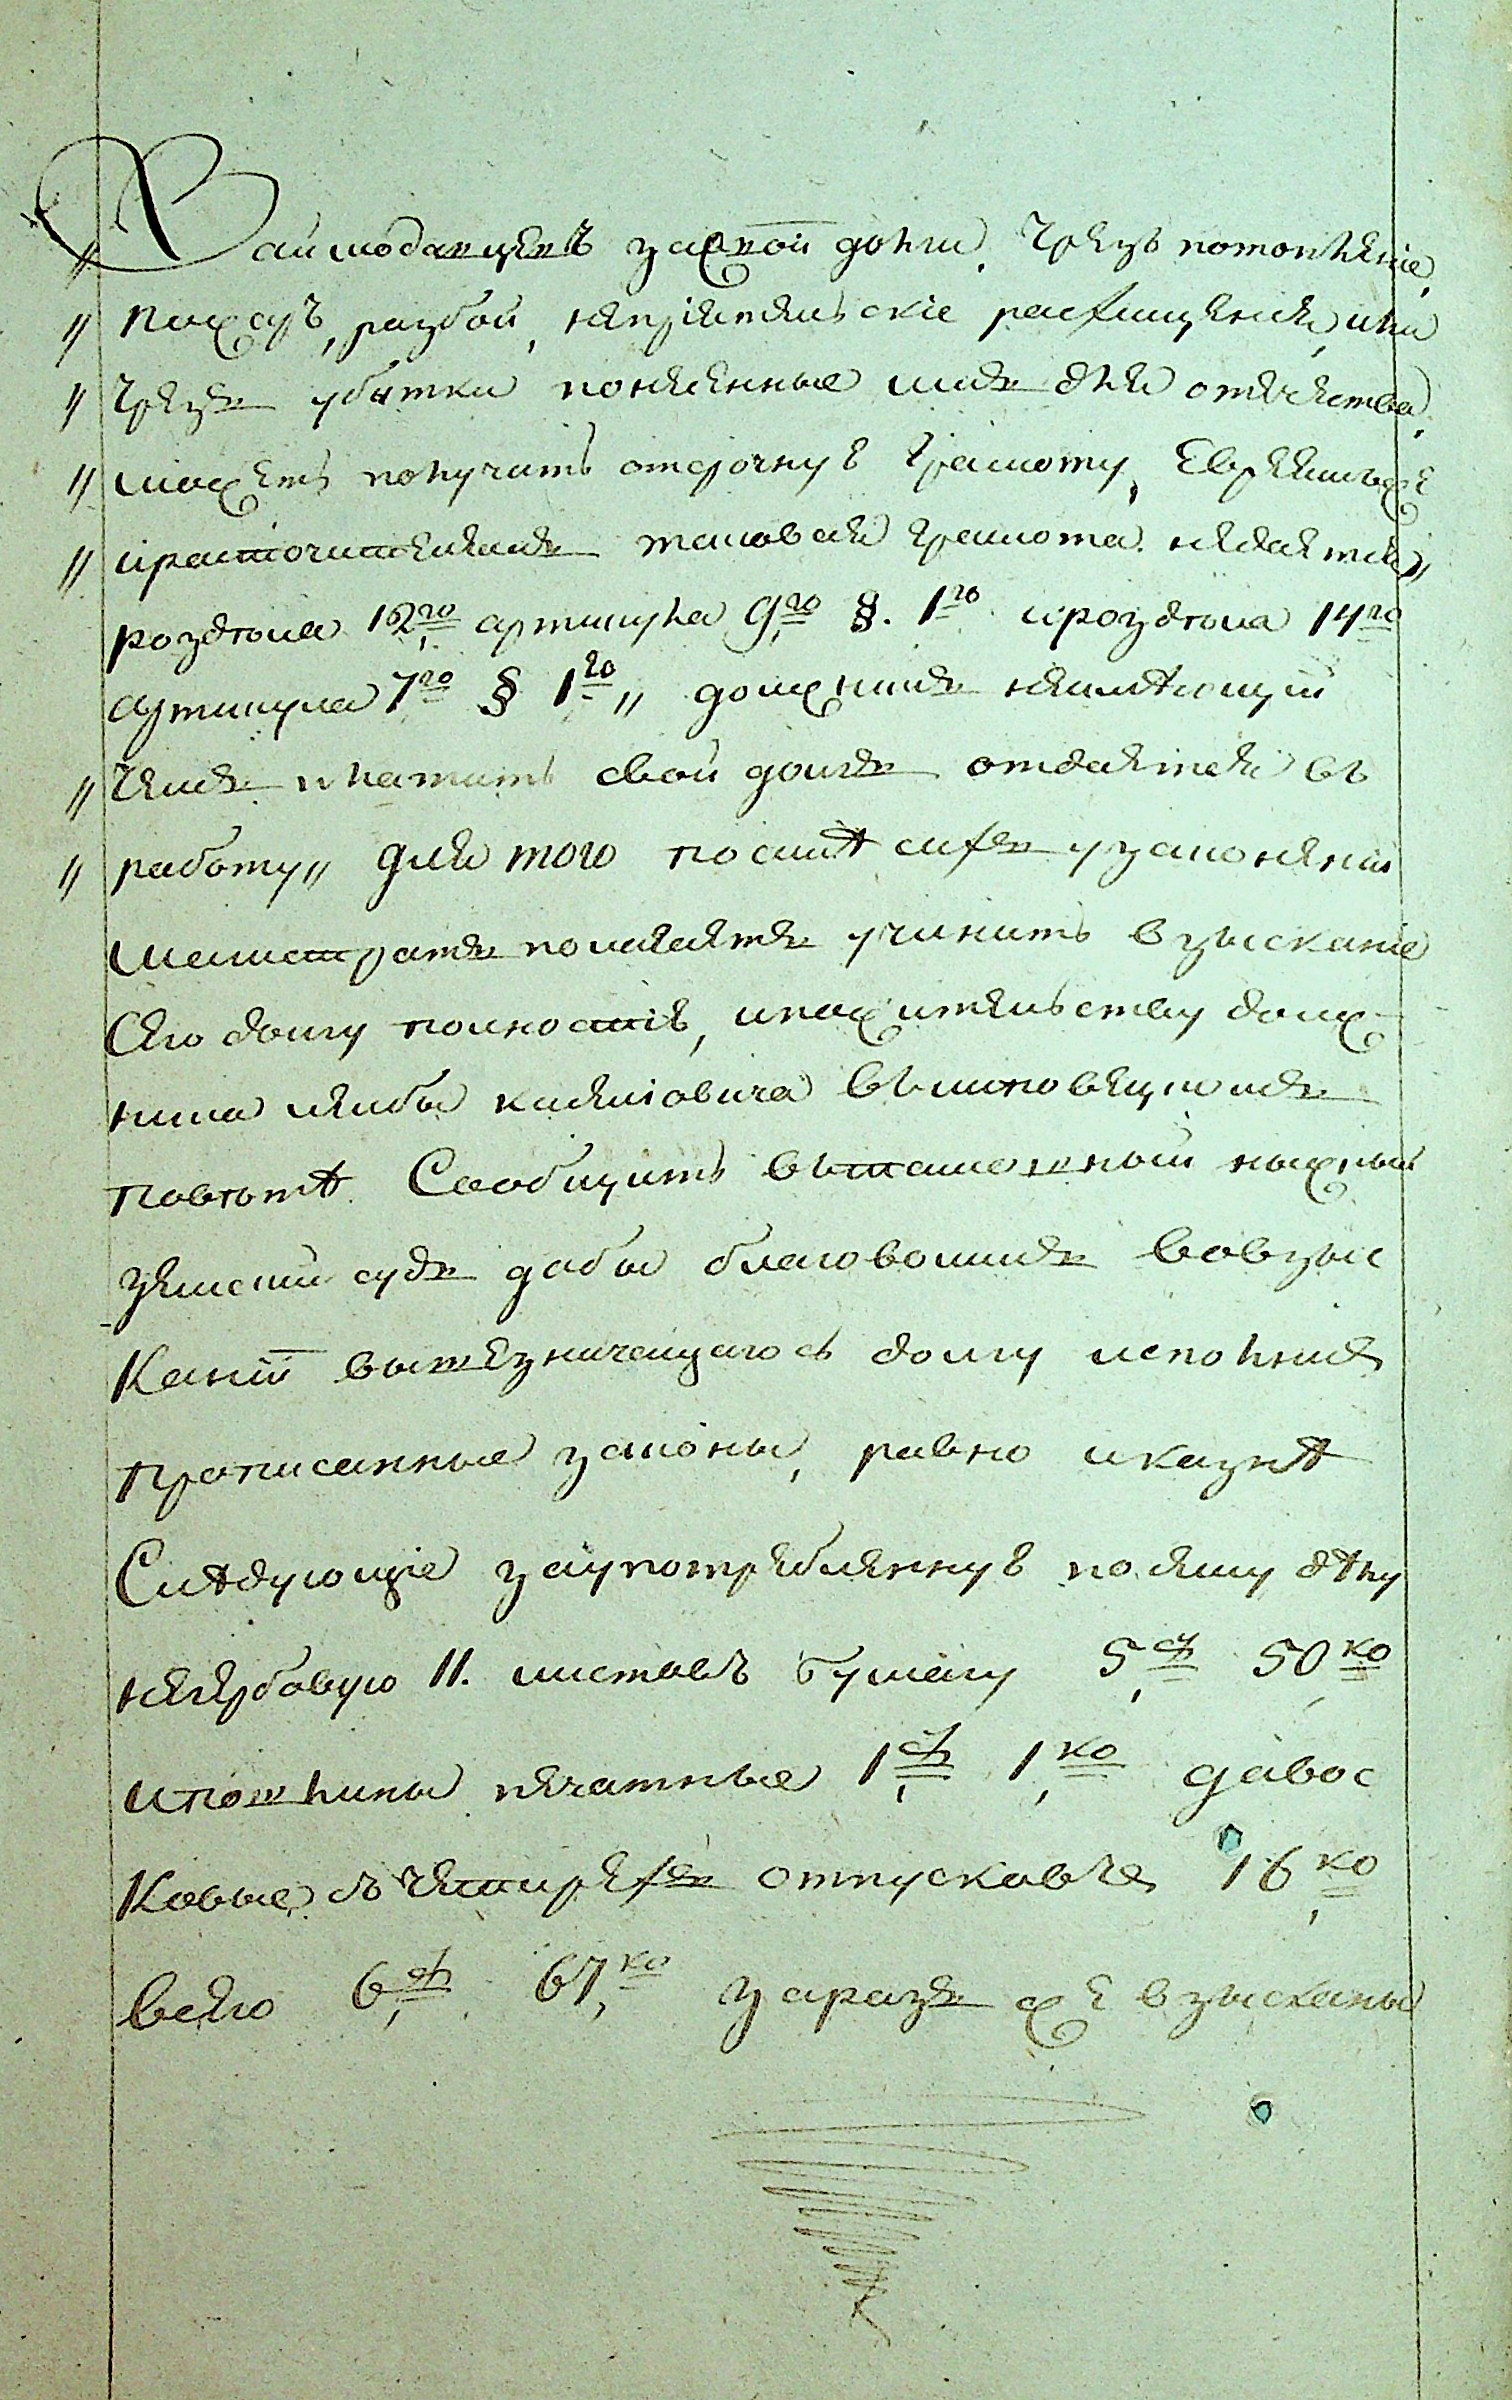 " Займодавцевъ зажной долги, чрезъ потопленіе,
" пожаръ, разбои, непріятельскіе расхищенія, или
" чрезъ убытки понесенные имъ для отечества,
" можетъ получить отсрочную грамоту, Евреямъже
" ирасточителямъ таковая грамота недается"
роздѣла 12го артикула 9го §. 1го ироздѣла 14го
артикула 7го § 1го " должникъ неимѣющій
" чемъ платить свой долгъ отдается въ
" работу" для того посилѣ сихъ узаконеній
магистратъ полагаетъ учинить взысканіе
Сего долгу полностію, ипожительству долж-
ника лейбы въ
повѣтѣ. Сообщить въ нижный
земскій судъ дабы благоволилъ вовзыс
Каніи вышезначащагось долгу исполня
прописанные законы, равно иказнѣ
Слѣдующіе заупотребленную посему дѣлу
негербовую 11. листовъ бумагу 5 ср 50 ко
ипошлины печатные 1 ср 1 ко завос
Ковые съ четирехъ отпусковъ 16 ко
всего 6 ср 67 ко заразъ же взысканы